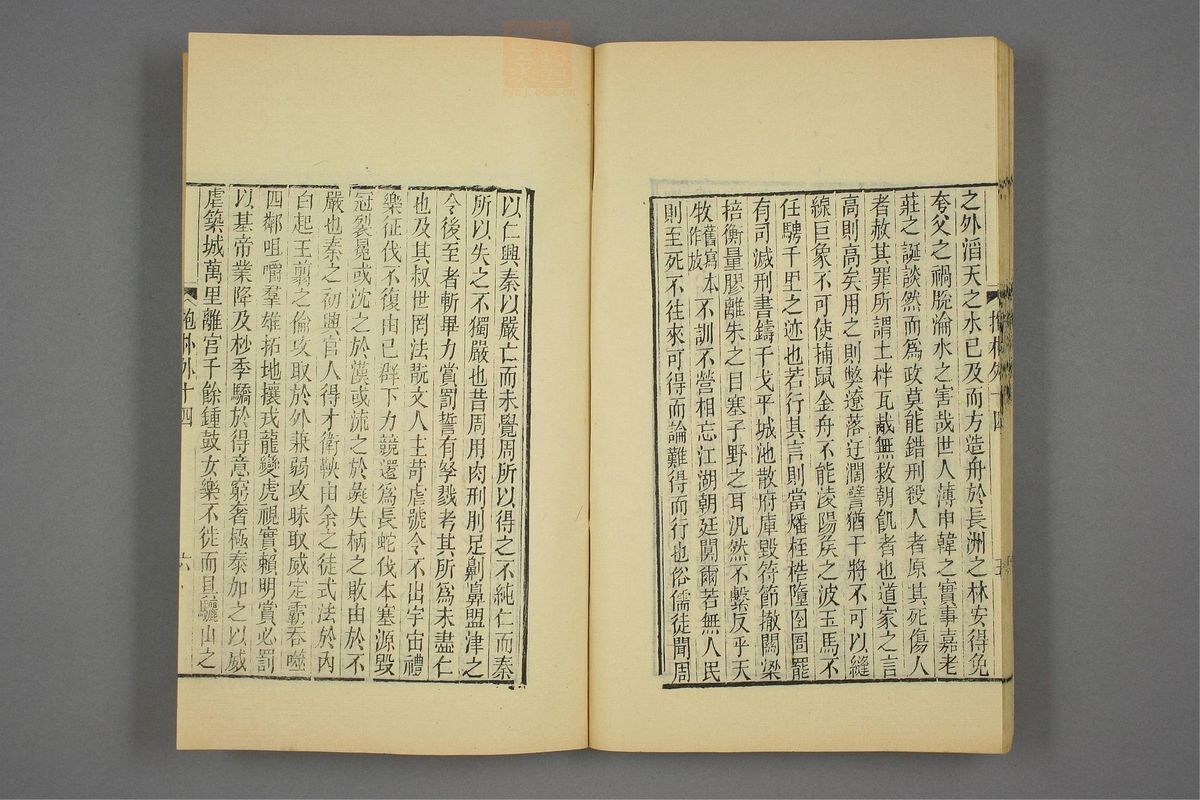 之外滔天之水已及而方造舟於長洲之林安得免
夸父之禍脫淪水之害哉世人薄申韓之實事嘉老
莊之誕談然而為政莫能錯刑殺人者原其死傷人
者赦其罪所謂土柈瓦胾無救朝飢者也道家之言
高則高矣用之則弊遼落迂闊譬猶干將不可以縫
線巨象不可使捕鼠金舟不能淩陽矦之波玉馬不
任騁千里之迹也若行其言則當燔桎梏墮囹圄罷
有司滅刑書鑄干戈平城池散府庫毀符節撤關梁
掊衡量膠離朱之目塞子野之耳汎然不繫反乎天
牧舊寫本作放不訓不營相忘江湖朝廷闃爾若無人民
則至死不往來可得而論難得而行也俗儒徒聞周
以仁興秦以嚴亡而未覺周所以得之不純仁而秦
所以失之不獨嚴也昔周用肉刑刖足劓鼻盟津之
令後至者斬畢力賞罰誓有孥戮考其所為未盡仁
也及其叔世罔法翫文人主苛虐號令不出宇宙禮
樂征伐不復由己群下力競還為長蛇伐本塞源毀
冠裂冕或沈之於漢或流之於彘失柄之敗由於不
嚴也秦之初興官人得才衛鞅由余之徒式法於內
白起王翦之倫攻取於外兼弱攻昧取威定霸吞噬
四鄰咀嚼羣雄拓地攘戎龍變虎視實賴明賞必罰
以基帝業降及杪季驕於得意窮奢極泰加之以威
虐築城萬里離宮千餘鍾鼓女樂不徙而具驪山之
抱朴外十四
六